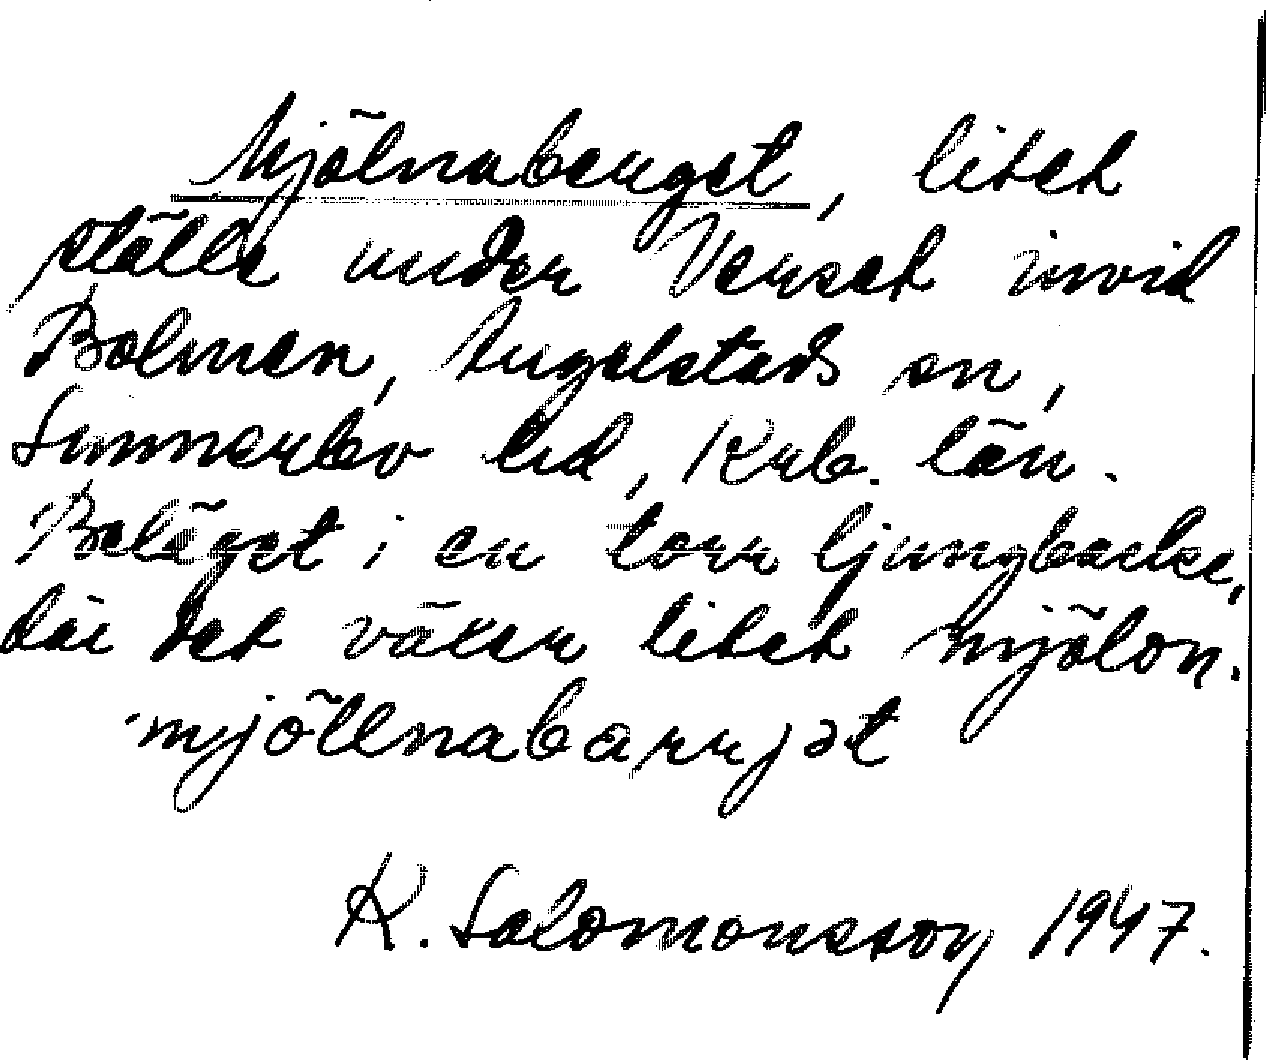 Mjölnaberget, litet
ställe under Verset invid
Bolmen, Angelstads sn,
Sunnerbo hd, Krb. län.
Beläget i en torr ljungbacke,
där det växer litet mjölon.
mjöllnabarrjət
K. Salomonsson 1947.